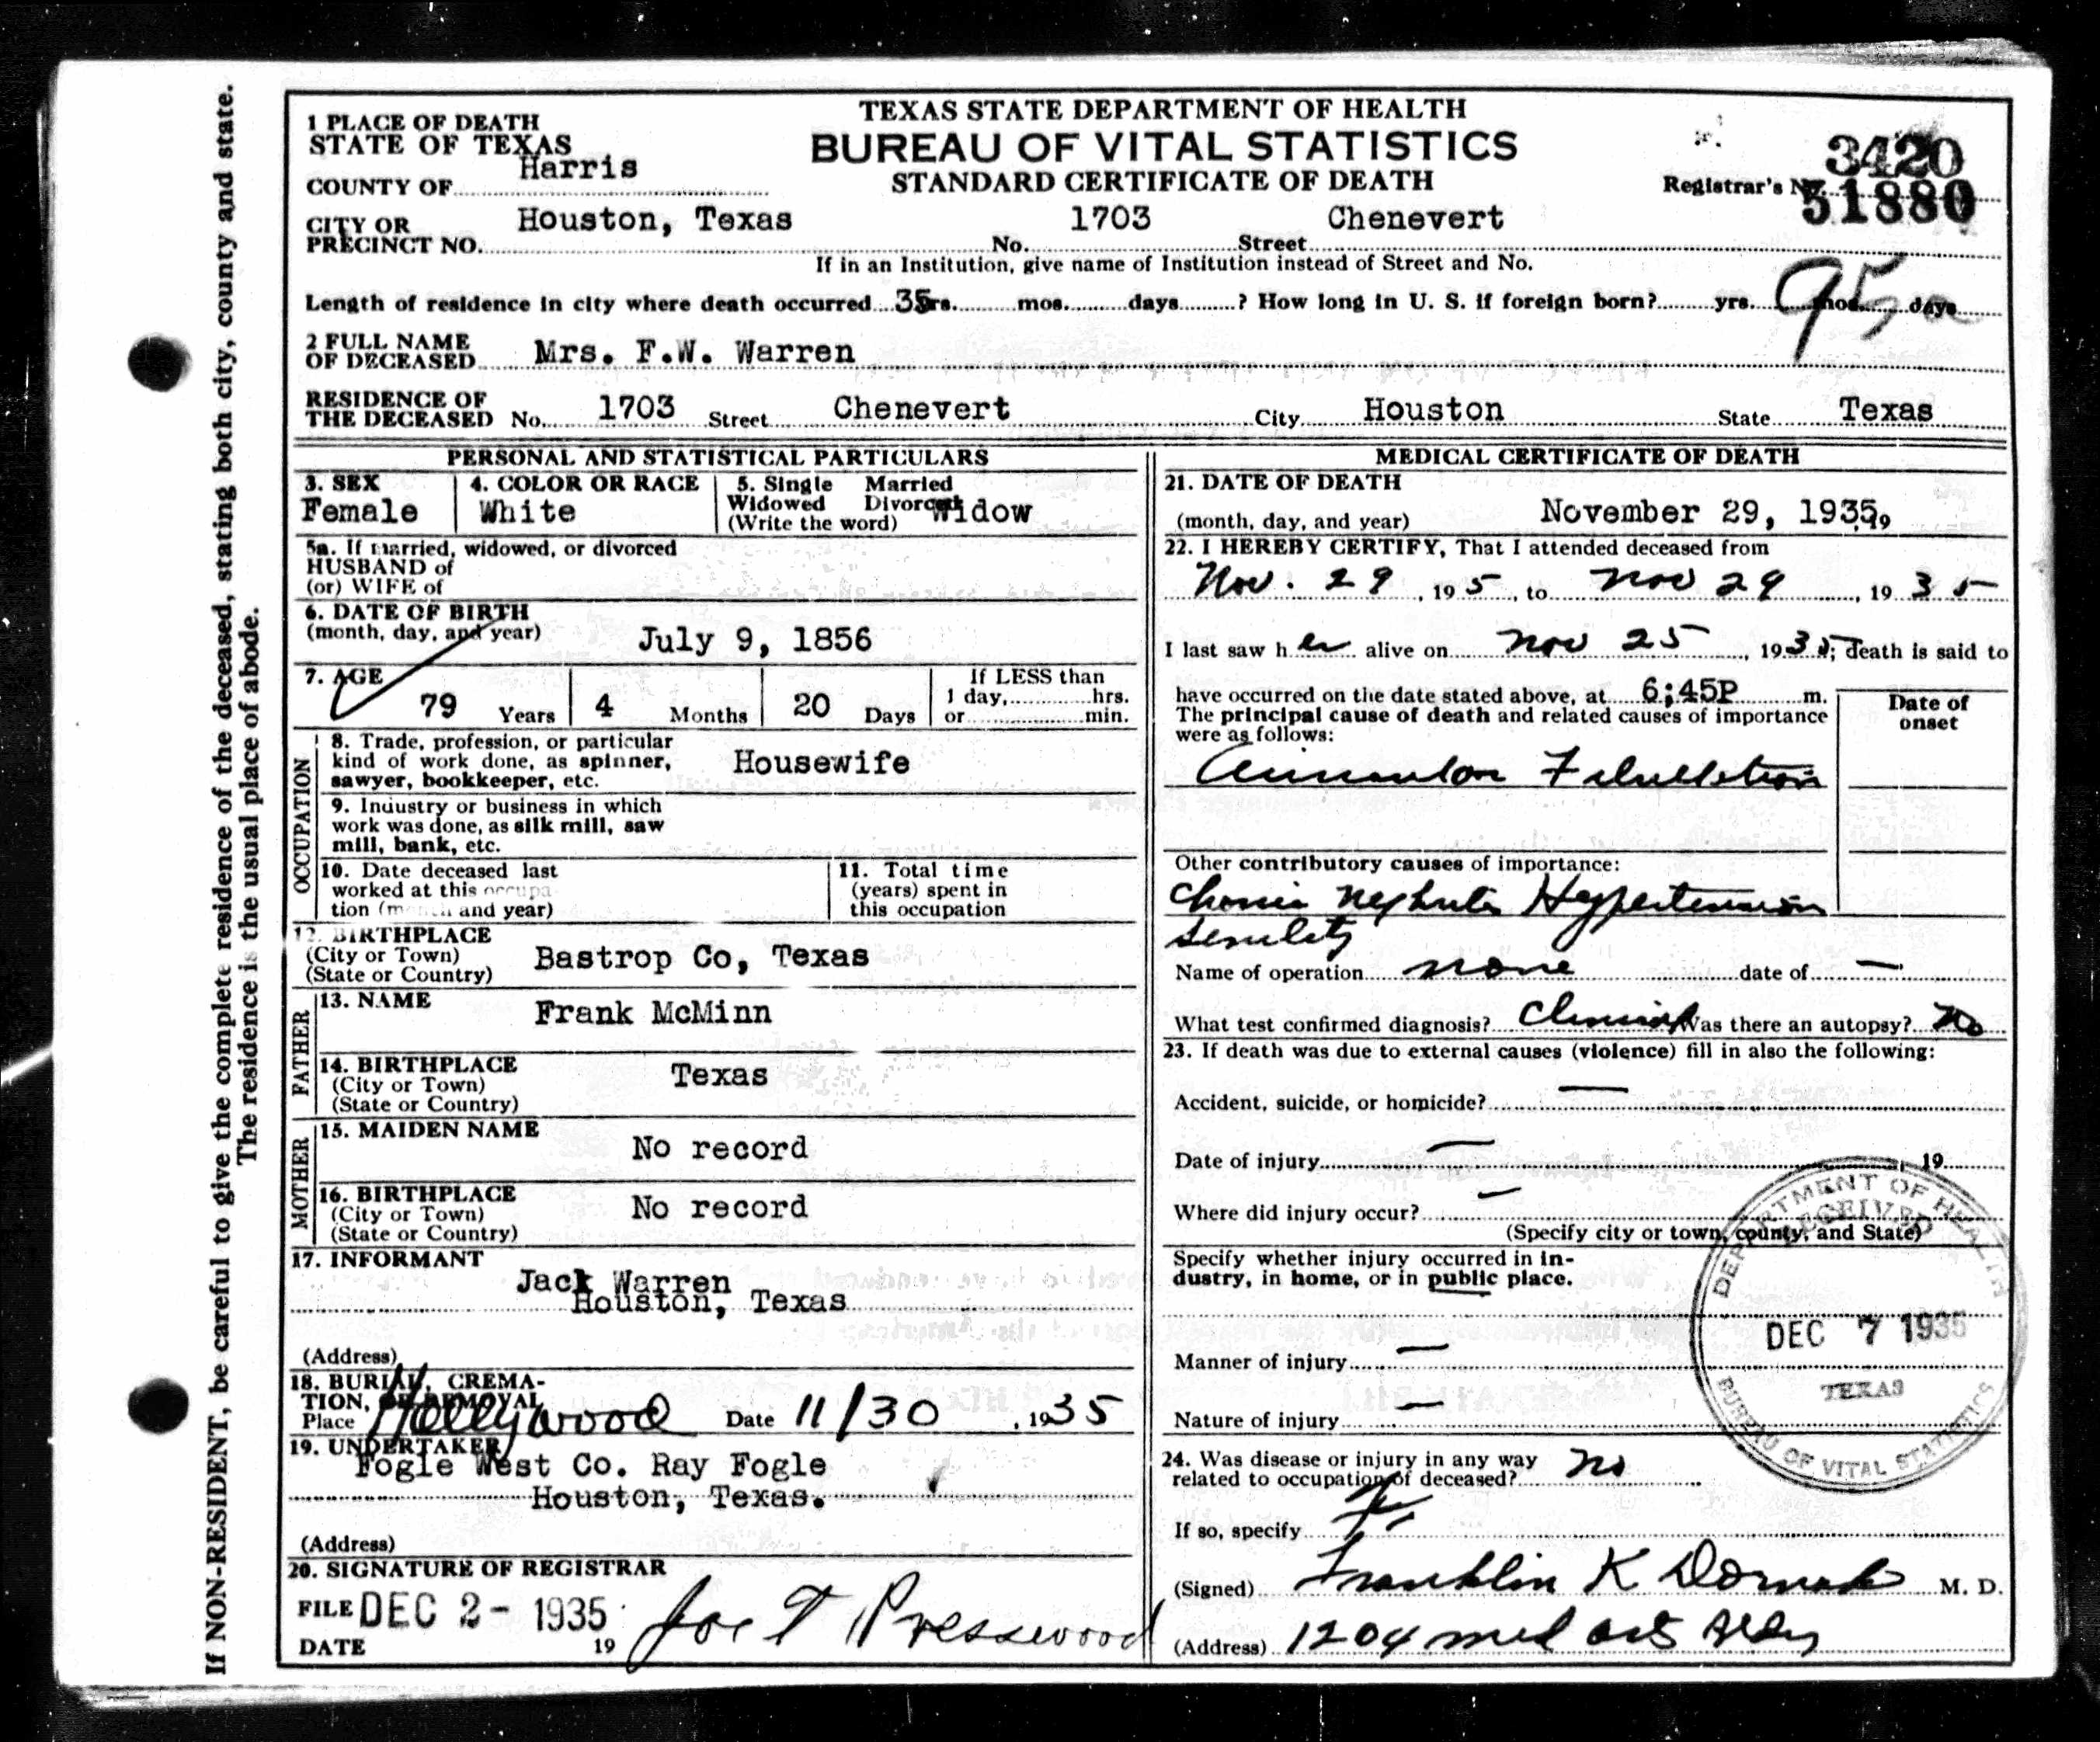 If NON-RESIDENT, be careful to give the complete residence of the deceased, stating both city, county and state.
The residence is the usual place of abode.
TEXAS STATE DEPARTMENT OF HEALTH
BUREAU OF VITAL STATISTICS
STANDARD CERTIFICATE OF DEATH
1 PLACE OF DEATH
STATE OF TEXAS
COUNTY OF Harris
Registrar's No. 3420
51880
CITY OR PRECINCT NO. Houston, Texas No. 1703 Street Chenevert
If in an Institution, give name of Institution instead of Street and No.
Length of residence in city where death occurred 35 yrs. mos. days ? How long in U. S. if foreign born? yrs. mos. days
95
2 FULL NAME OF DECEASED Mrs. F.W. Warren
RESIDENCE OF THE DECEASED No. 1703 Street Chenevert City Houston State Texas
PERSONAL AND STATISTICAL PARTICULARS
3. SEX Female
4. COLOR OR RACE White
5. Single Married Widowed Divorced (Write the word) Widow
5a. If married, widowed, or divorced
HUSBAND of
(or) WIFE of
6. DATE OF BIRTH
(month, day, and year) July 9, 1856
7. AGE 79 Years 4 Months 20 Days
If LESS than
1 day, hrs.
or min.
OCCUPATION
8. Trade, profession, or particular
kind of work done, as spinner,
sawyer, bookkeeper, etc. Housewife
9. Industry or business in which
work was done, as silk mill, saw
mill, bank, etc.
10. Date deceased last
worked at this occupa-
tion (month and year)
11. Total time
(years) spent in
this occupation
12. BIRTHPLACE
(City or Town)
(State or Country) Bastrop Co, Texas
FATHER
13. NAME Frank McMinn
14. BIRTHPLACE
(City or Town)
(State or Country) Texas
MOTHER
15. MAIDEN NAME No record
16. BIRTHPLACE
(City or Town)
(State or Country) No record
17. INFORMANT
Jack Warren
Houston, Texas
(Address)
18. BURIAL, CREMA-
TION, OR REMOVAL
Place Hollywood Date 11/30, 1935
19. UNDERTAKER
Fogle West Co. Ray Fogle
Houston, Texas.
(Address)
20. SIGNATURE OF REGISTRAR
FILE DATE DEC 2 - 1935 19 Joe T Presswood
MEDICAL CERTIFICATE OF DEATH
21. DATE OF DEATH
(month, day, and year) November 29, 1935, 19
22. I HEREBY CERTIFY, That I attended deceased from
Nov. 29, 19 5, to Nov 29, 19 35
I last saw her alive on Nov 25, 1935; death is said to
have occurred on the date stated above, at 6;45P m.
The principal cause of death and related causes of importance
were as follows:
Date of
onset
Fibrillation
Other contributory causes of importance:
Chronic Nephritis Hypertension
Senility
Name of operation none date of —
What test confirmed diagnosis? Clinical Was there an autopsy? No
23. If death was due to external causes (violence) fill in also the following:
Accident, suicide, or homicide? —
Date of injury — , 19
Where did injury occur? —
(Specify city or town, county, and State)
Specify whether injury occurred in in-
dustry, in home, or in public place.
Manner of injury —
Nature of injury —
24. Was disease or injury in any way
related to occupation of deceased? no
If so, specify
(Signed) Franklin K M. D.
(Address) 1204 Med Arts Bldg
DEPARTMENT OF HEALTH
RECEIVED
DEC 7 1935
TEXAS
BUREAU OF VITAL STATISTICS